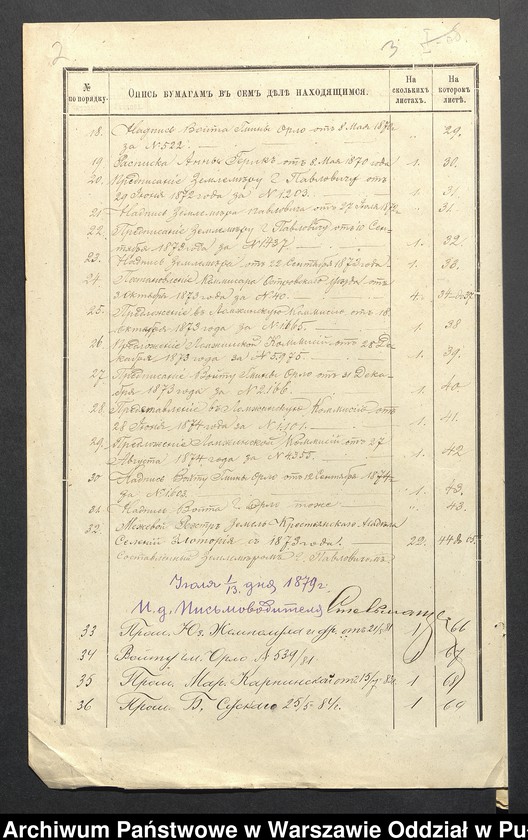 2 3
№ по порядку.
Опись бумагамъ въ семъ дѣлѣ находящимся.
На сколькихъ листахъ.
На которомъ листѣ.
18. Надпись Войта Гмины Орло отъ 8 Мая 1870
за № 522. 29.
19. Записка Анны отъ 8 Мая 1870 года 1. 30.
20. Предписаніе Землемѣру Г. Павловичу отъ
29 Іюня 1872 года за № 1203. 1. 31.
21. Надпись Землемѣра Павловича отъ 27 Іюля 31.
22. Предписаніе Землемѣру Г. Павловичу отъ 10 Сен-
тября 1873 года за № 1437 1. 32.
23. Надпись Землемѣра отъ 22 Сентября 1873 года 1. 33.
24. Постановленіе Комисара Островскаго уѣзда отъ
3 Октября 1873 года за № 40. 4. 34 до 37.
25. Предложеніе въ Ломжинскую Коммисію отъ 18
Октября 1873 года за № 1665. 1. 38
26. Предложеніе Ломжинской Коммисіи отъ 28 Де-
кабря 1873 года за № 5975. 1. 39.
27. Предписаніе Войту Гмины Орло отъ 31 Дека-
бря 1873 года за № 2166. 1. 40
28. Представленіе въ Ломжинскую Коммисію отъ
28 Іюня 1874 года за № 1101. 1. 41.
29. Предложеніе Ломжинской Коммисіи отъ 27
Августа 1874 года за № 4355. 1. 42
30. Надпись Войту Гмины Орло отъ 12 Сентября 1874
за № 1603. 1. 43.
31. Надпись Войта Г. Орло тоже 43.
32. Межевой Реестръ Земель Крестьянскаго Надѣла
Селеній Злоторія съ 1873 года. 22. 44
составленный Землемѣромъ Г. Павловичемъ
Іюля 1/13. дня 1879 г.
И. д. Письмоводителя
33 Прош. Юз. и др. отъ 21/5 81 1 66
34 Войту гм. Орло № 539/81. 67
35 Прош. Мар. Карпинской отъ 13/9 82 1 68
36 Прош. Б. Сускаго 25/5 84 г. 1 69
Archiwum Państwowe w Warszawie Oddział w Pu